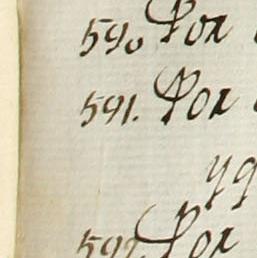 590 Por
591. Por
yq
592 Por